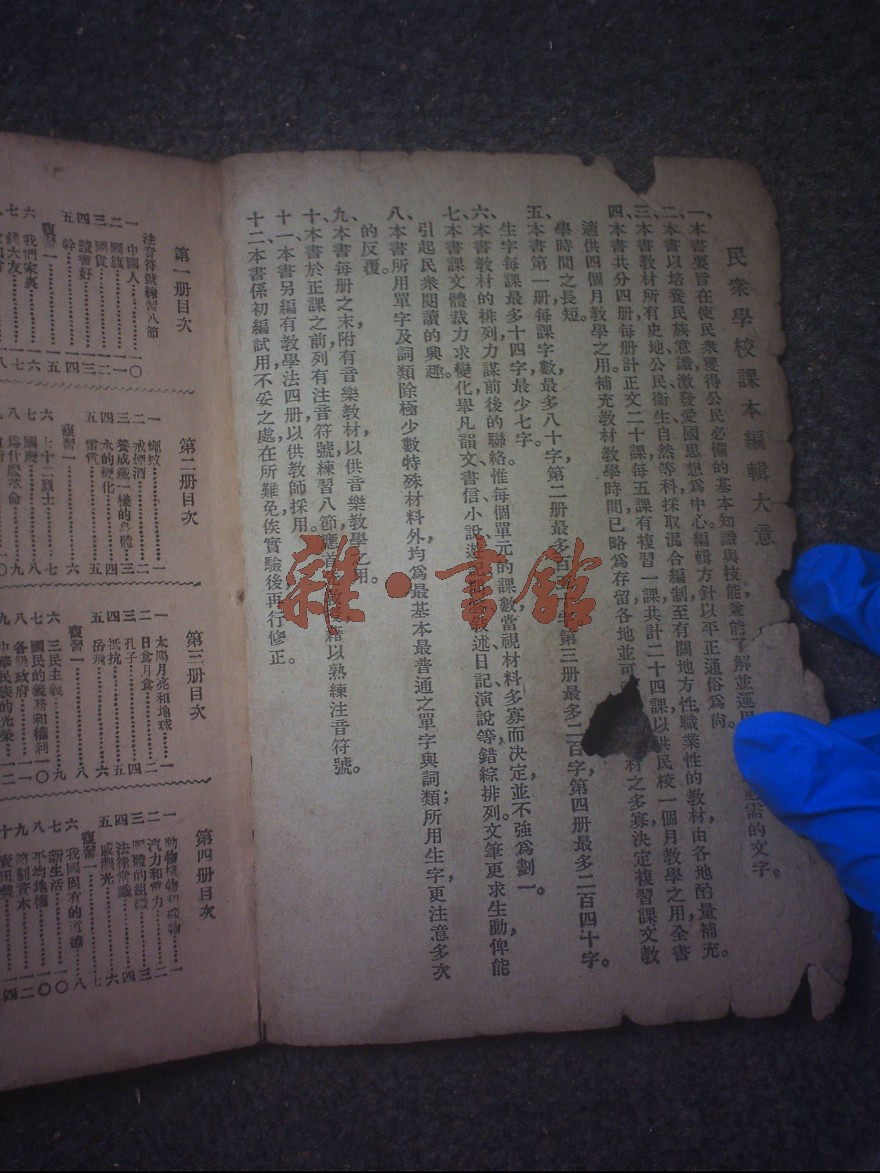 民衆學校課本編輯大意
一、本書要旨在使民衆獲得公民必備的基本知識與技能，兼能了解並運用
需的文字。
二、本書以培養民族意識，激發愛國思想爲中心，編輯方針以平正通俗爲尙。
三、本書教材所有史地、公民、衛生、自然等科，採取混合編制，至有關地方性、職業性的教材，由各地酌量補充。
四、本書共分四册，每册計正文二十課，每五課有複習一課，共計二十四課，以供民校一個月教學之用，全書
適供四個月教學之用。補充教材教學時間，已略爲存留，各地並可
材之多寡，決定複習課文教
學時間之長短。
五、本書第一册每課字數最多八十字，第二册最多百
十字，第三册最多二百字，第四册最多二百四十字。
生字每課最多十四字，最少七字。
六、本書教材的排列，力謀前後的聯絡，惟每個單元的課數，當視材料多寡而決定，並不強爲劃一。
七、本書課文體裁力求變化，舉凡韻文、書信、小說、遊記
敘述、日記、演說等，錯綜排列。文筆更求生動，俾能
引起民衆閱讀的興趣。
八、本書所用單字及詞類，除極少數特殊材料外，均爲最基本最普通之單字與詞類；所用生字更注意多次
的反覆。
九、本書每册之末，附有音樂教材，以供音樂教學之用。
十、本書於正課之前，列有注音符號練習八節，應首
以熟練注音符號。
十一、本書另編有教學法四册，以供教師採用。
十二、本書係初編試用，不妥之處，在所難免，俟實驗後再行修正。
第一册目次
注音符號練習八節
一 中國人 一〇
二 國旗 一
三 國貨 二
四 讀書好 三
五 幹 四
複習一 五
六 我們家裏 六
七
第二册目次
一 蠅蚊 一
二 戒煙酒 二
三 養成鐵一樣的身體 三
四 水的變化 四
五 雷電 五
複習一 六
六 七十二烈士 七
七 國慶 八
八 爲什麼革命 九
第三册目次
一 太陽月亮和地球 一
二 日食月食 二
三 孔子 四
四 抵抗 五
五 岳飛 六
複習一 八
六 三民主義 九
七 國民的義務和權利 一〇
八 各級政府 一一
九 中華民族的光榮 一二
第四册目次
一 動物植物和礦物 一
二 汽力和電力 二
三 團體的組織 三
四 法律常識 四
五 戚繼光 六
複習一 七
六 我國固有的道德 八
七 新生活 一〇
八 平均地權 一〇
九 節制資本 一二
十
雜·書館